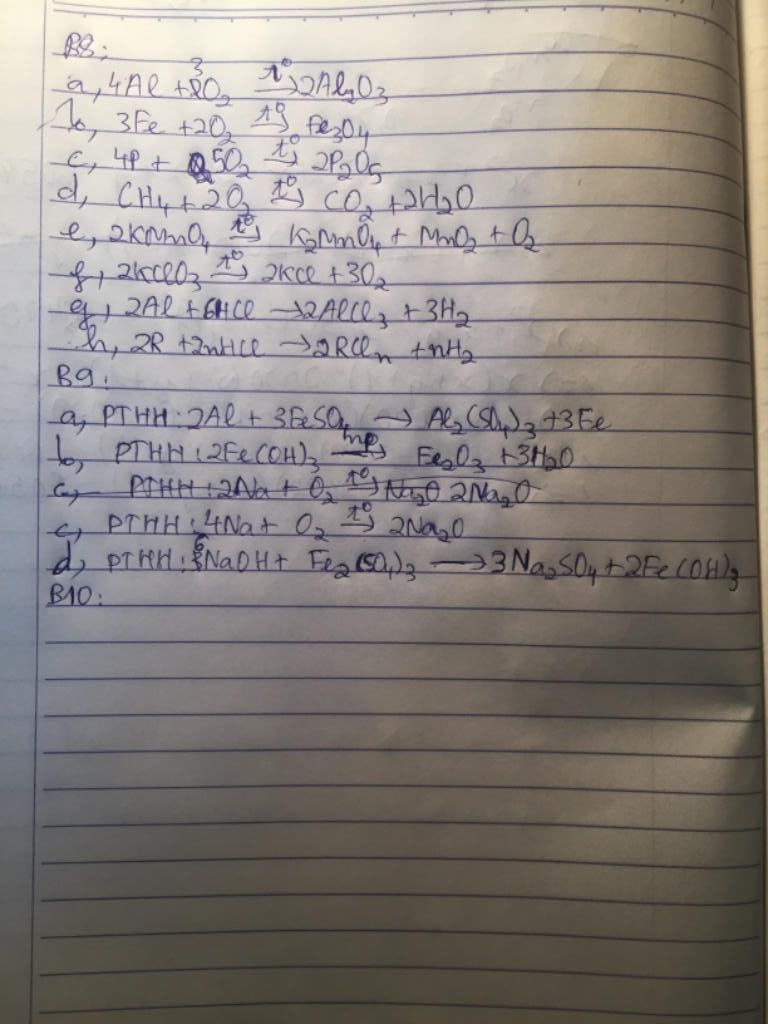 B8:
a, 4Al + 3O₂ —t°→ 2Al₂O₃
b, 3Fe + 2O₂ —t°→ Fe₃O₄
c, 4P + 5O₂ —t°→ 2P₂O₅
d, CH₄ + 2O₂ —t°→ CO₂ + 2H₂O
e, 2KMnO₄ —t°→ K₂MnO₄ + MnO₂ + O₂
f, 2KClO₃ —t°→ 2KCl + 3O₂
g, 2Al + 6HCl → 2AlCl₃ + 3H₂
h, 2R + 2nHCl → 2RClₙ + nH₂
B9:
a, PTHH: 2Al + 3FeSO₄ → Al₂(SO₄)₃ + 3Fe
b, PTHH: 2Fe(OH)₃ → Fe₂O₃ + 3H₂O
c, PTHH: 2Na + O₂ —t°→ Na₂O 2Na₂O
c, PTHH: 4Na + O₂ —t°→ 2Na₂O
d, PTHH: 6NaOH + Fe₂(SO₄)₃ → 3Na₂SO₄ + 2Fe(OH)₃
B10: